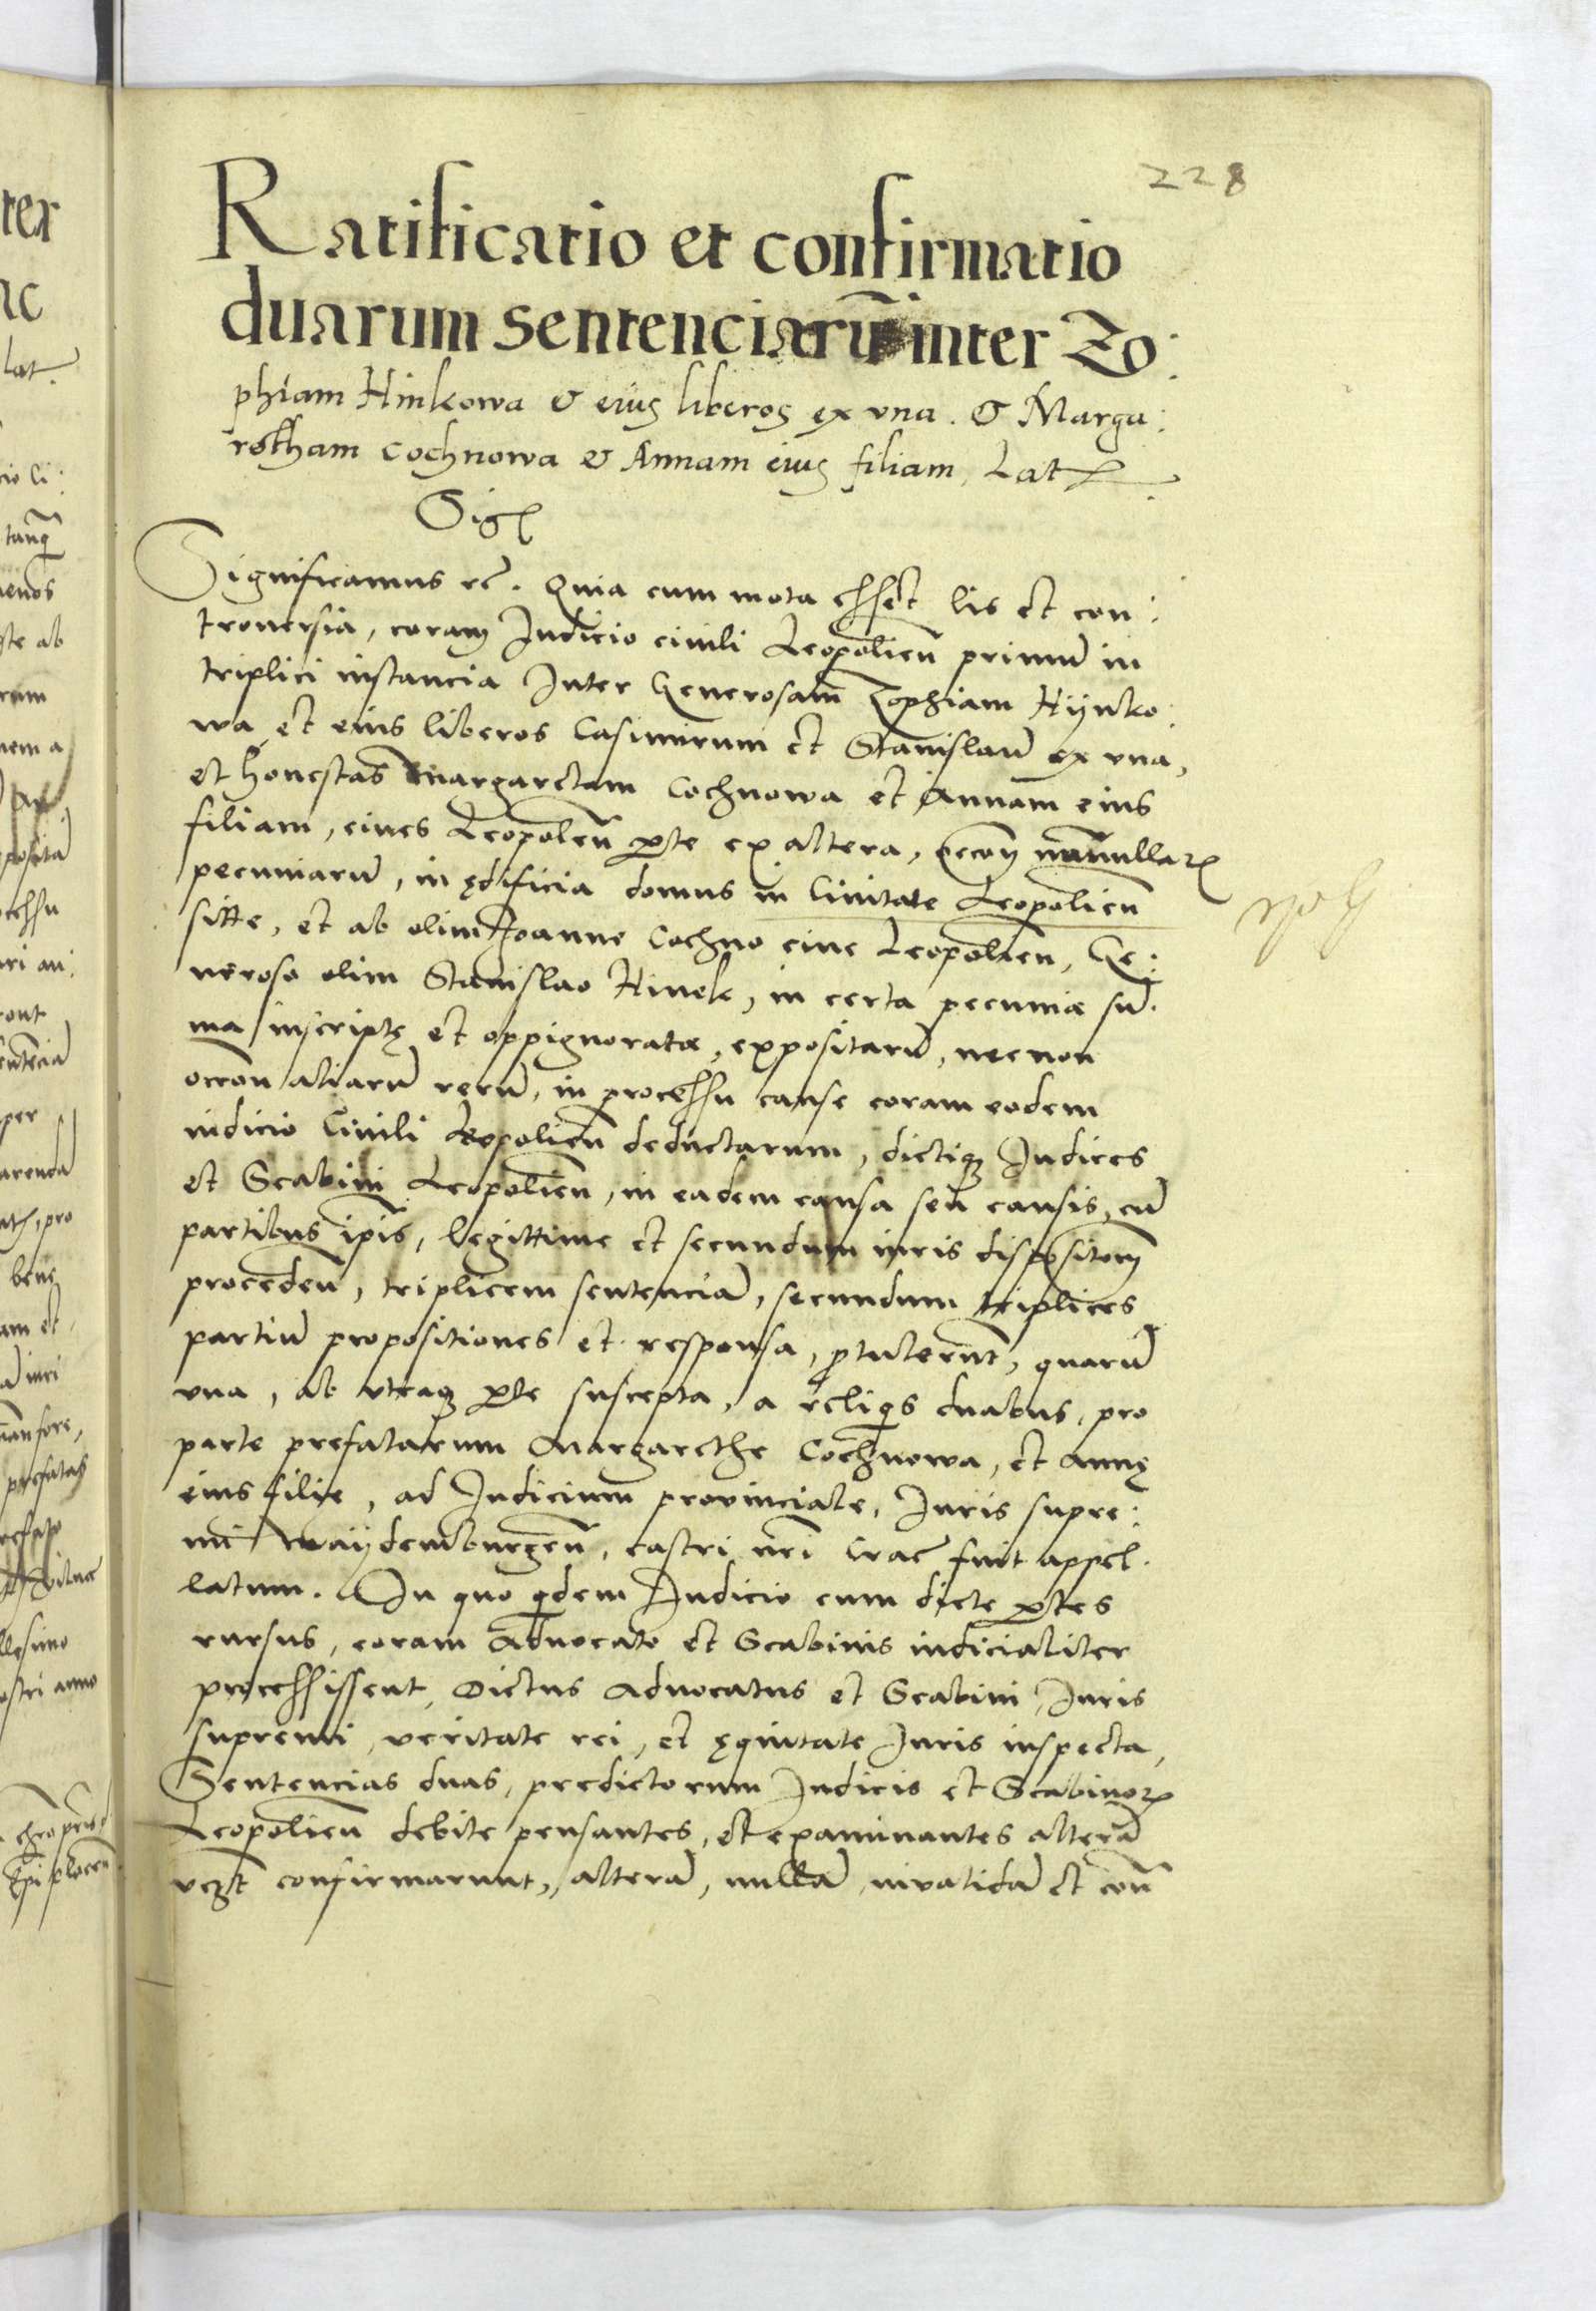 228
Ratificatio et confirmatio
duarum sentenciarū inter Zo:
phiam Hinkowa & eius liberos ex vna. & Marga:
retham Cochnowa & Annam eius filiam, Lat
Sig
Significamus etc. Quia cum mota esset lis et con:
trouersia, coram Iudicio ciuili Leopolien̄ primū in
triplici instancia Inter Generosam Zophiam Hynko:
wa et eius liberos Casimirum et Stanislaū ex vna,
et honestas Margaretam Cochnowa et Annam eius
filiam, ciues Leopolen̄ pte ex altera, nonnullarꝝ
pecuniarū, in ędificia domus in Ciuitate Leopolien̄
sitte, et ab olim Joanne Cochno ciue Leopolien̄, Ge:
neroso olim Stanislao Hinek, in certa pecuniæ sū.
ma inscriptę et oppignoratæ, expositarū, necnon
occōn aliarū rerū, in processu cause coram eodem
iudicio Ciuili Leopolien̄ deductarum, dictiqꝫ Iudices
et Scabini Leopolien̄, in eadem causa seu causis, cū
partibus ip̄is, legittime et secundum iuris dispositōem
proceden̄, triplicem sentenciā, secundum triplices
partiū propositiones et responsa, ꝓtulerūt, quarū
vna, ab vtraqꝫ pte suscepta, a reliqis duabus, pro
parte prefatarum Margarethe Cochnowa, et Annę
eius filie, ad Iudicium prouinciale, Iuris supre:
mi Maydemburgen̄, castri nr̄i Crac̄ fuit appel.
latum. In quo qdem Iudicio cum dicte ptes
rursus, coram Aduocato et Scabinis iudicialiter
processissent, Dictus Aduocatus et Scabini Iuris
supremi, veritate rei, et ęquitate Iuris inspecta,
Sentencias duas, predictorum Iudicis et Scabinorꝝ
Leopolien̄ debite pensantes, et examinantes alterā
vꝫt confirmarunt, alterā, nullā, inualidā et